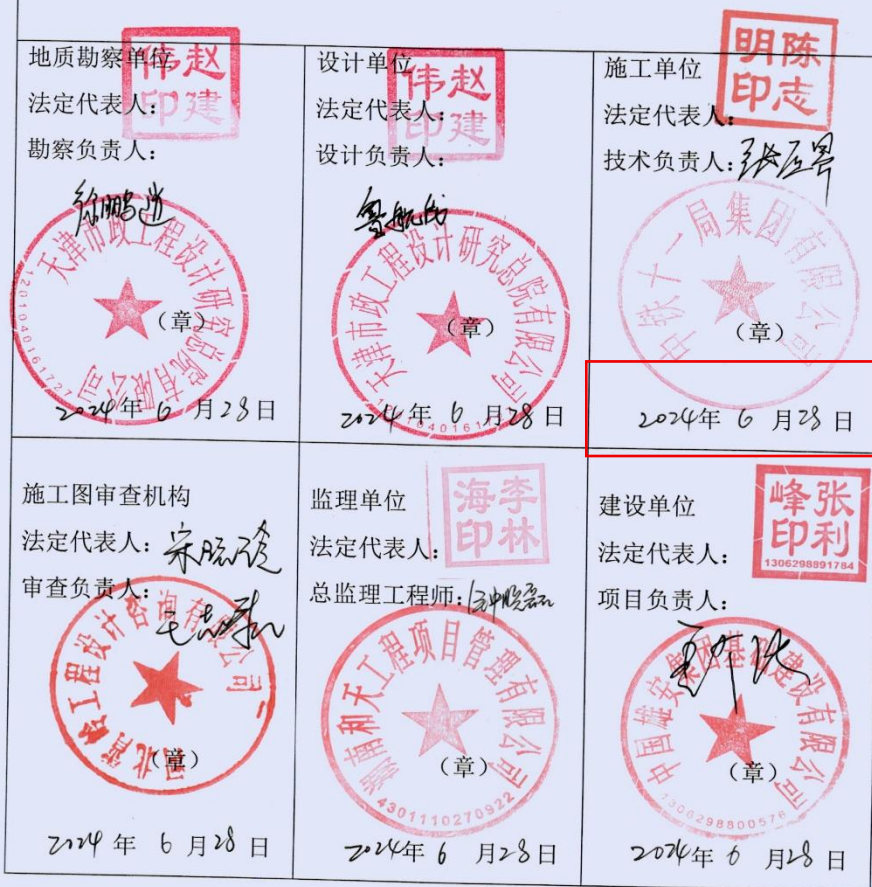 地质勘察单位
赵建伟印
法定代表人：
勘察负责人：
天津市政工程设计研究总院有限公司
1201040161727
（章）
2024年 6 月28日
设计单位
赵建伟印
法定代表人：
设计负责人：
天津市政工程设计研究总院有限公司
（章）
2024年 6 月28日
施工单位
陈志明印
法定代表人：
技术负责人：
中铁十一局集团有限公司
（章）
2024年 6 月28日
施工图审查机构
法定代表人：
审查负责人：
工程设计咨询有限公司
（章）
2024年 6 月28日
监理单位
李林海印
法定代表人：
总监理工程师：
湖南和天工程项目管理有限公司
4301110270922
（章）
2024年 6 月28日
建设单位
张利峰印
1306298891784
法定代表人：
项目负责人：
中国雄安集团基础建设有限公司
1306298800576
（章）
2024年 6 月28日